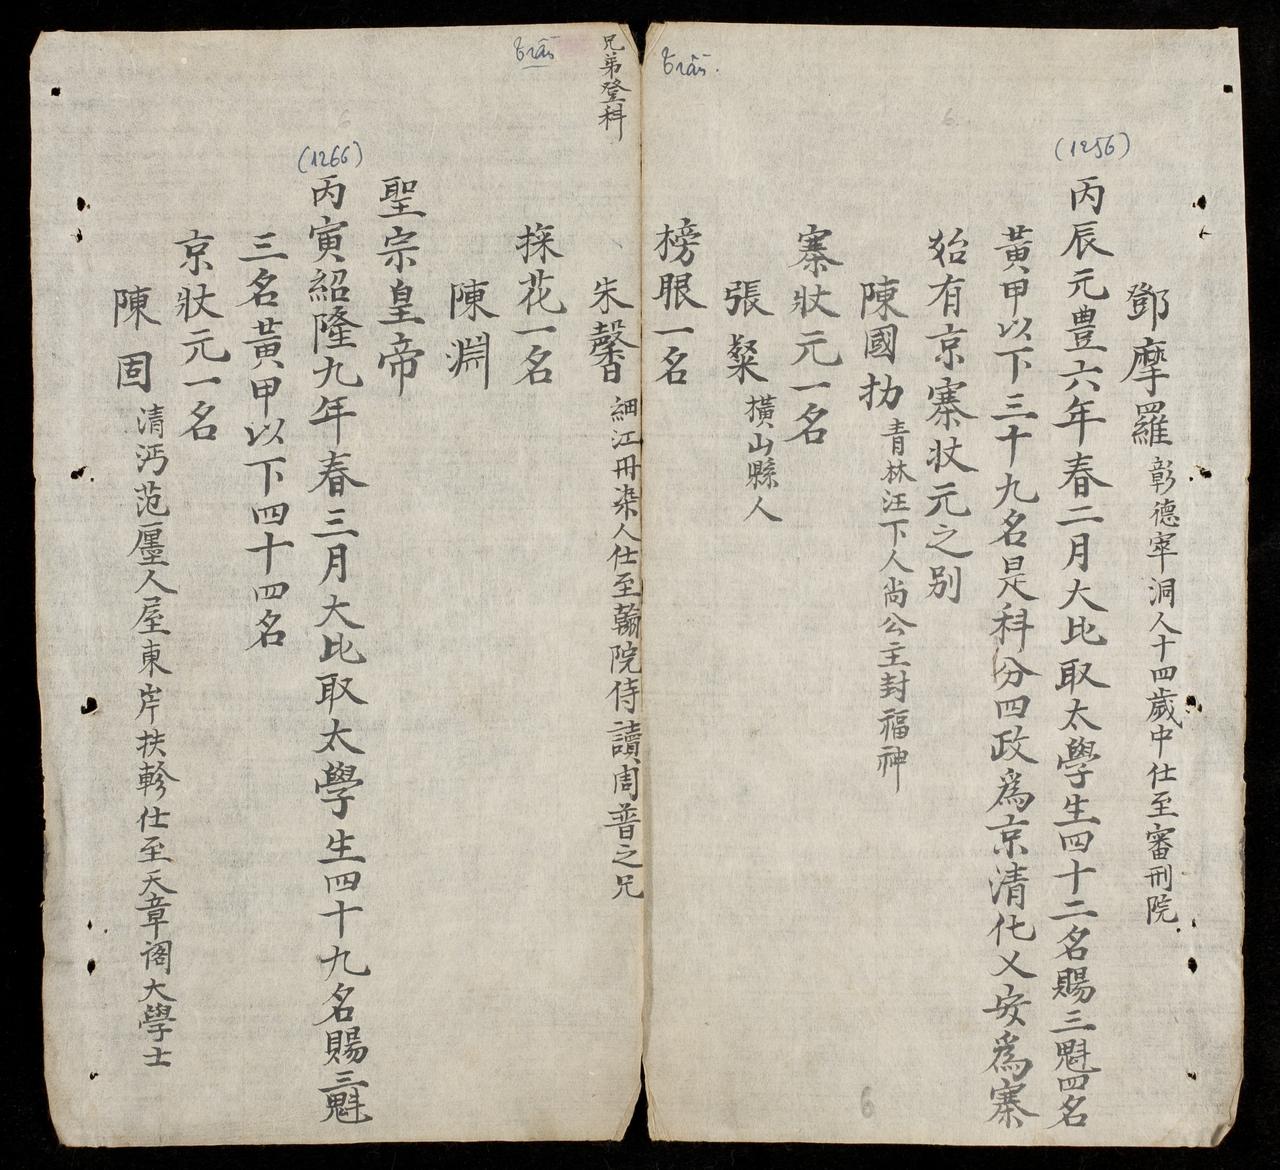 Trần.
鄧摩羅 彰德寧洞人十四歲中仕至審刑院
(1256)
丙辰元豊六年春二月大比取太學生四十二名賜三魁四名
黃甲以下三十九名是科分四政爲京清化乂安爲寨
始有京寨狀元之别
陳國扐 青林汪下人尚公主封福神
寨狀元一名
張粲 橫山縣人
榜眼一名
兄弟登科
朱馨 細江冊染人仕至翰院侍讀周普之兄
Trần
探花一名
陳淵
聖宗皇帝
(1266)
丙寅紹隆九年春三月大比取太學生四十九名賜三魁
三名黃甲以下四十四名
京狀元一名
陳固 清沔范𨤵人屋東岸扶軫仕至天章阁大學士
6